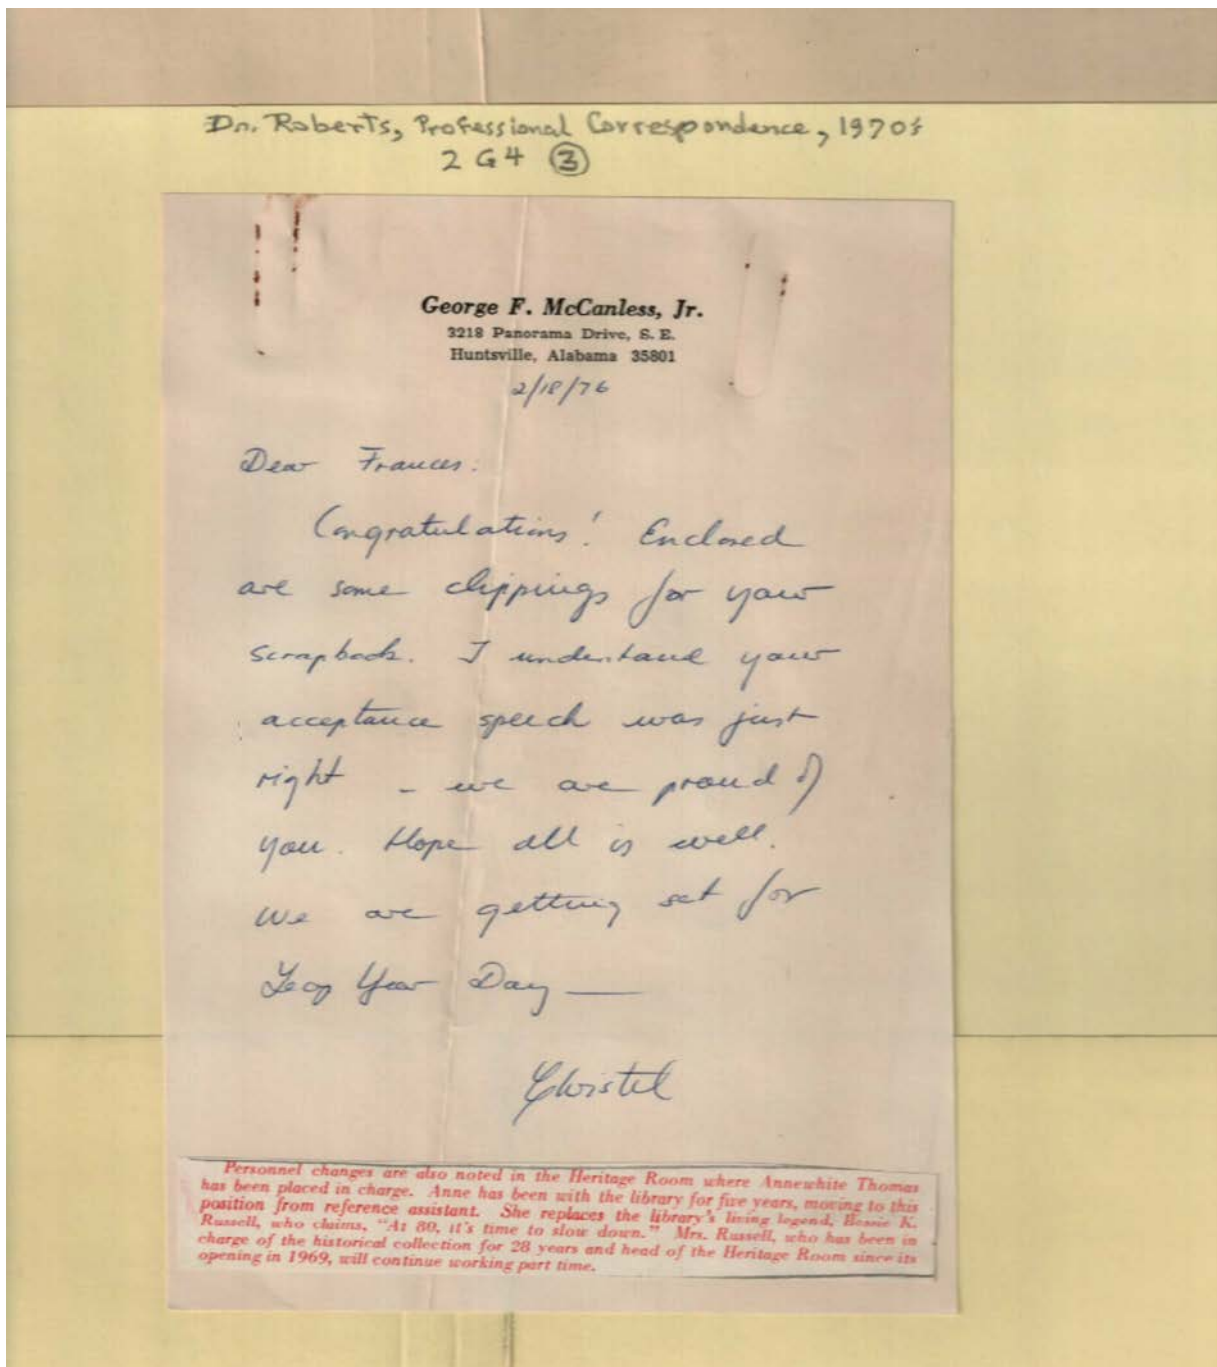 Dr. Roberts, Professional Correspondence, 1970's
2 G4 ③
George F. McCanless, Jr.
3218 Panorama Drive, S. E.
Huntsville, Alabama 35801
2/18/76
Dear Frances:
Congratulations! Enclosed
are some clippings for your
scrapbook. I understand your
acceptance speech was just
right - we are proud of
you. Hope all is well.
We are getting set for
Leap Year Day —
Christel
Personnel changes are also noted in the Heritage Room where Annewhite Thomas
has been placed in charge. Anne has been with the library for five years, moving to this
position from reference assistant. She replaces the library's living legend, Bessie K.
Russell, who claims, "At 80, it's time to slow down." Mrs. Russell, who has been in
charge of the historical collection for 28 years and head of the Heritage Room since its
opening in 1969, will continue working part time.